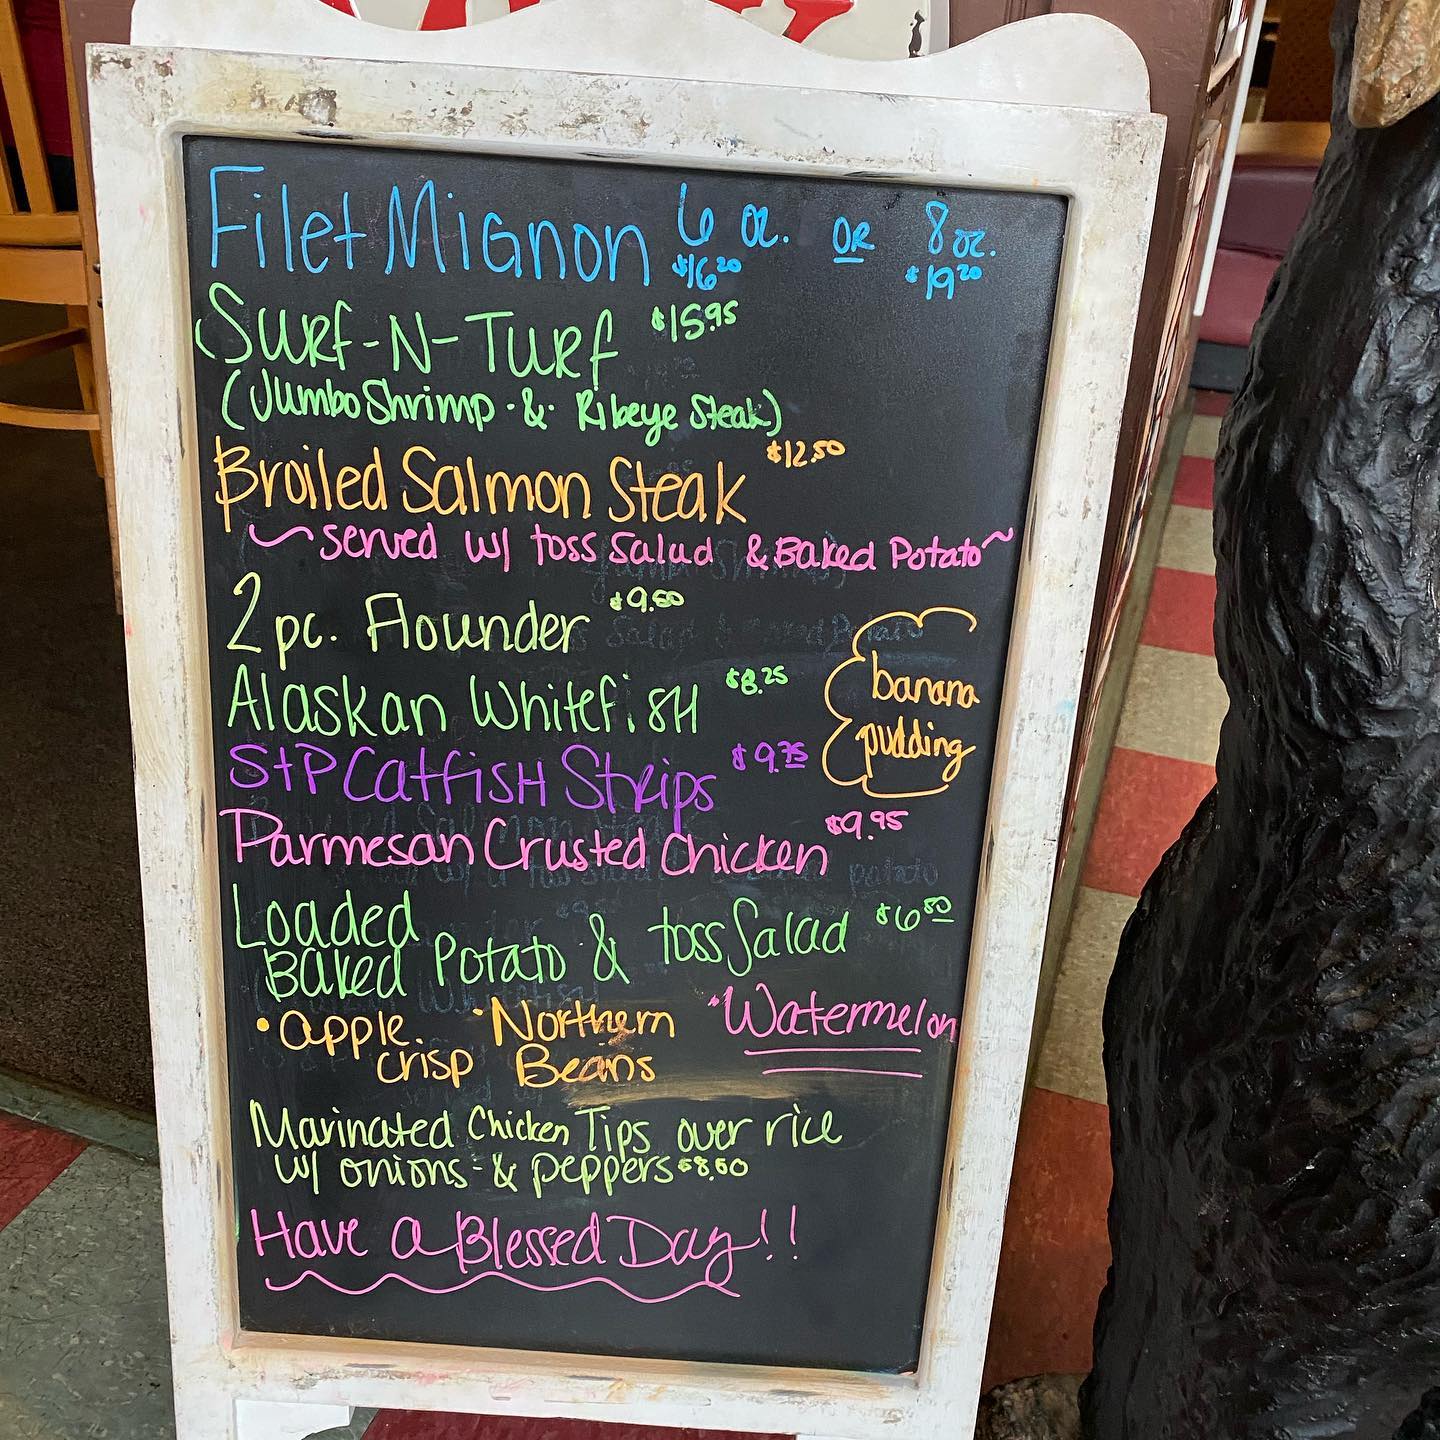 Filet Mignon 6 oz. OR 8 oz.
$16.20 $19.20
Surf-N-Turf $15.95
(Jumbo Shrimp & Ribeye Steak)
Broiled Salmon Steak $12.50
~served w/ toss Salad & Baked Potato~
2 pc. Flounder $9.50
Alaskan Whitefish $8.25
banana
pudding
StP Catfish Strips $9.75
Parmesan Crusted Chicken $9.95
Loaded
Baked Potato & toss Salad $6.50
• apple • Northern • Watermelon
crisp Beans
Marinated Chicken Tips over rice
w/ onions & peppers $8.50
Have a Blessed Day!!